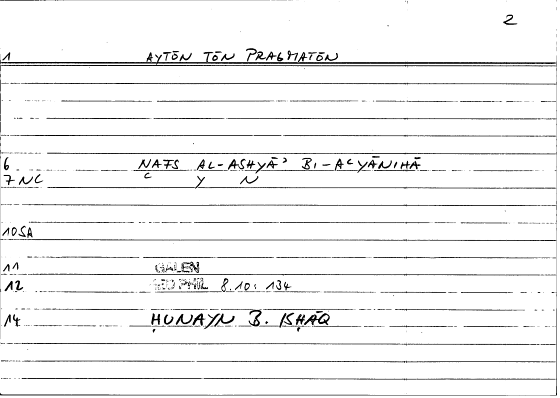 2
1 AYTŌN TŌN PRAGMATŌN
6 NAFS AL-ASHYĀʾ BI-AʿYĀNIHĀ
7 NC C Y N
10 SA
11 GALEN
12 MED PHIL 8.10: 134
14 ḤUNAYN B. ISḤĀQ